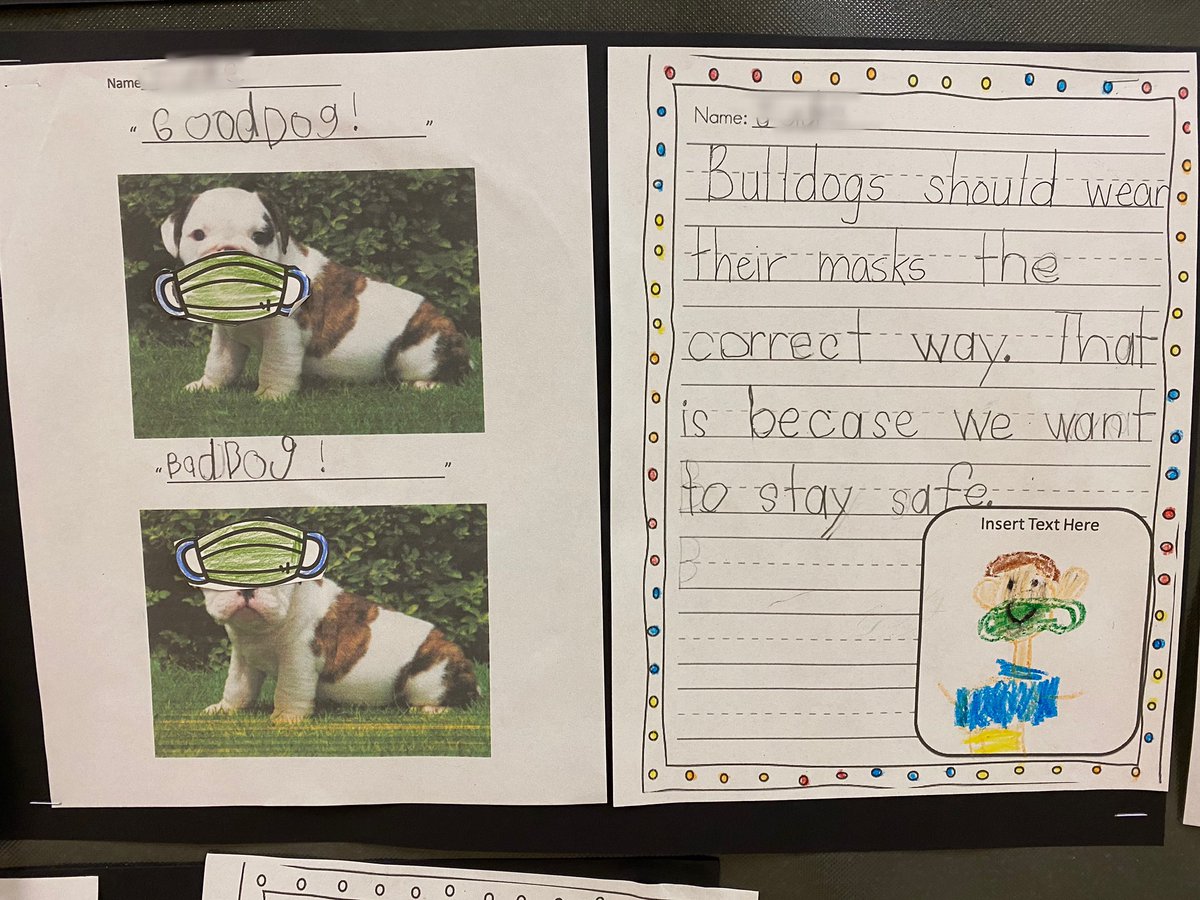 Name
"GoodDog!"
"BadDog!"
Name:
Bulldogs should wear
their masks the
correct way. That
is becase we want
to stay safe.
B
Insert Text Here